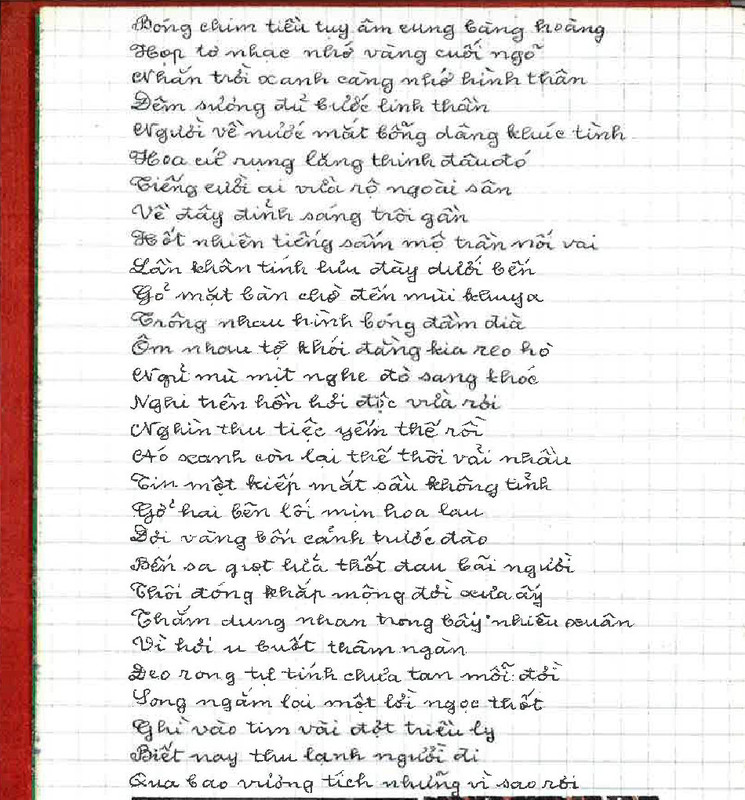 Bóng chim tiều tuy âm cung bàng hoàng
Họp tơ nhạc nhớ vàng cuối ngõ
Nhấn trời xanh càng nhớ hình thân
Đêm sương đủ bước linh thần
Người về nước mắt bỗng dâng khúc tình
Hoa cứ rụng lặng thinh đâu đó
Tiếng cười ai vừa rộ ngoài sân
Về đây đỉnh sáng trôi gần
Hốt nhiên tiếng sấm mộ trần nối vai
Lần khân tính hưu đày dưới bến
Gõ mặt bàn chờ đến mùi khuya
Trông nhau hình bóng đầm đìa
Ôm nhau tợ khói đằng kia reo hò
Ngủ mù mịt nghe đò sang khóc
Nghi trên hồn hởi độc vừa rồi
Nghìn thu tiệc yếm thế rồi
Áo xanh còn lại thế thôi vải nhầu
Tin một kiếp mắt sầu không tỉnh
Gở hai bên lối mịn hoa lau
Dơi vàng bốn cảnh trước đào
Bến sa giọt lửa thốt đau bãi người
Thôi đóng khắp mông đời xưa ấy
Thắm dung nhan trong bấy nhiêu xuân
Vì hơi u buốt thâm ngàn
Đeo rong tự tính chưa tan mỗi đời
Song ngắm lại một lời ngọc thốt
Ghì vào tim vài đợt triều ly
Biết nay thu lạnh người đi
Qua bao vương tích những vì sao rơi